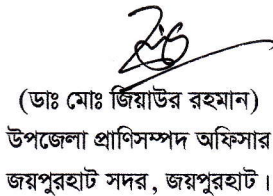 (ডাঃ মোঃ জিয়াউর রহমান)
উপজেলা প্রাণিসম্পদ অফিসার
জয়পুরহাট সদর , জয়পুরহাট ।